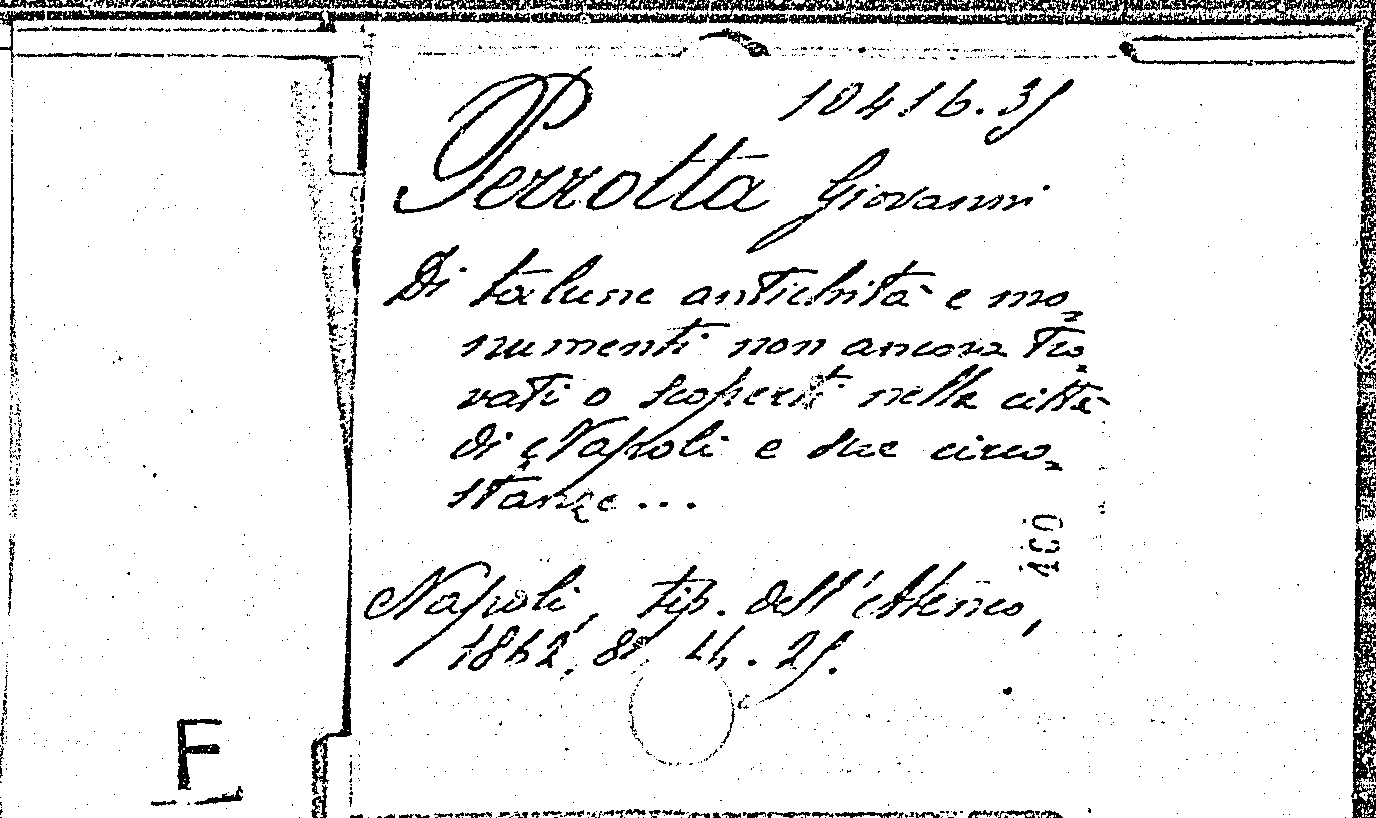 10416.35
Perrotta Giovanni
Di talune antichità e mo-
numenti non ancora tro-
vati o scoperti nella città
di Napoli e sue circo-
stanze...
100
Napoli, tip. dell'Ateneo,
1862, 8º 25.
F